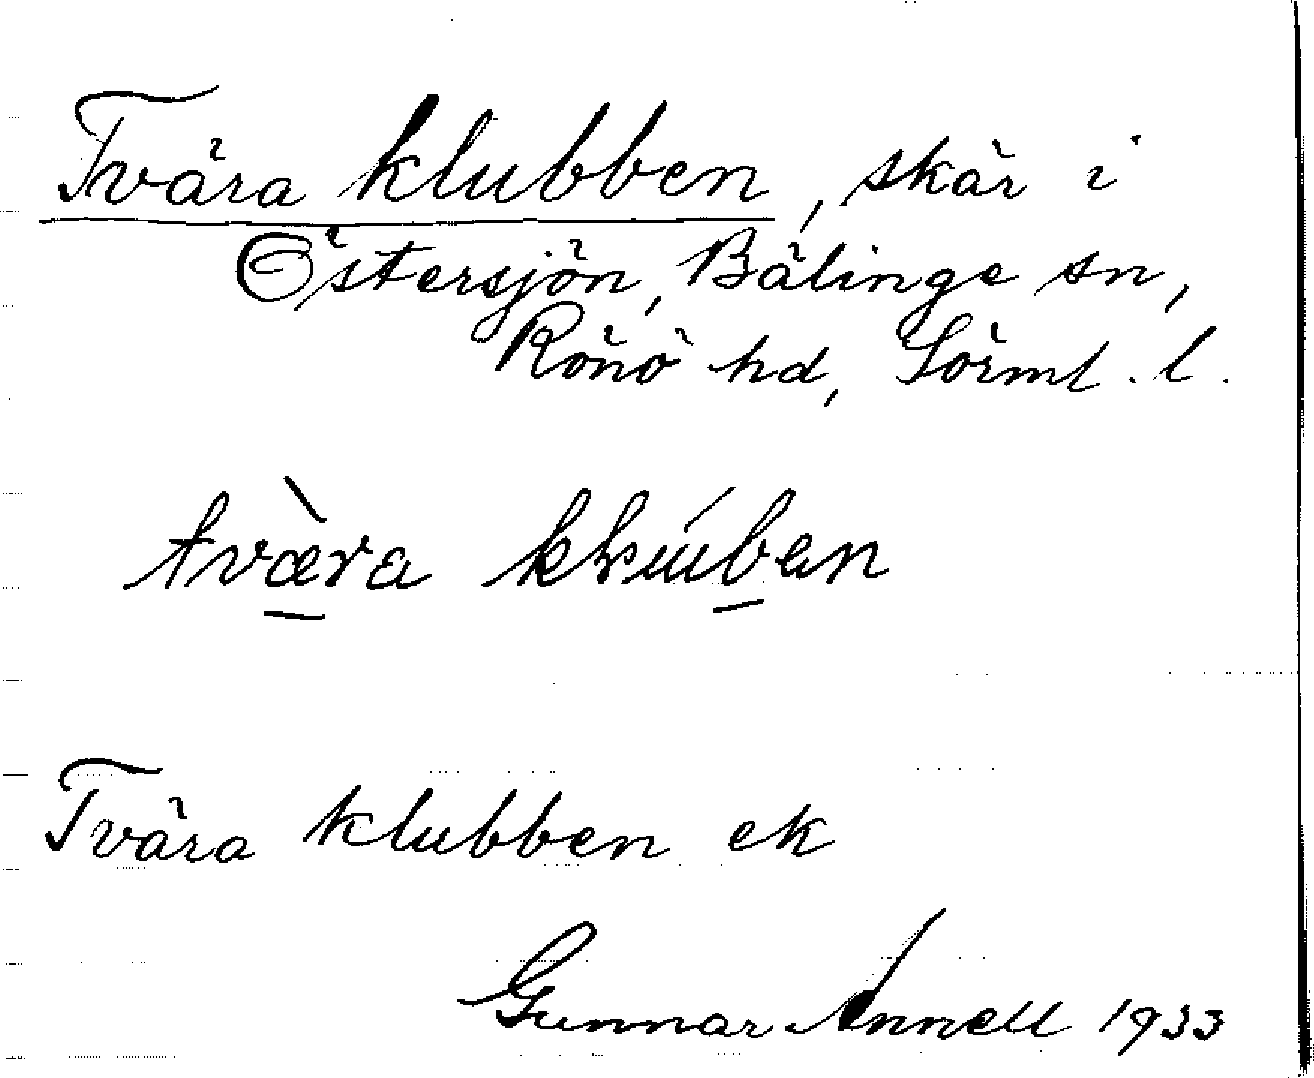 Tvära klubben, skär i
Östersjön, Bälinge sn,
Rönö hd, Sörml. l.
tvæ̀ra klúban
Tvära klubben ek
Gunnar Annell 1933